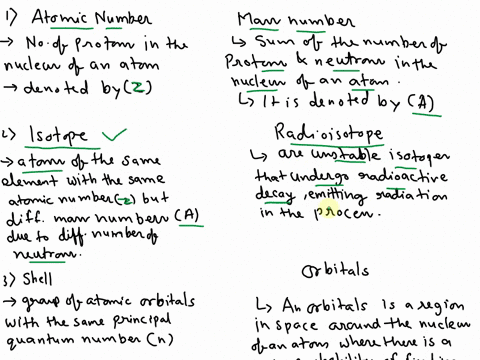 1) Atomic Number
→ No. of protons in the
nucleus of an atom
→ denoted by (Z)
Mass number
↳ Sum of the number of
Protons & neutrons in the
nucleus of an atom.
↳ It is denoted by (A)
2) Isotope ✓
→ atoms of the same
element with the same
atomic number (Z) but
diff. mass numbers (A)
due to diff. number of
neutrons.
Radioisotope
↳ are unstable isotopes
that undergo radioactive
decay, emitting radiation
in the process.
3) Shell
→ group of atomic orbitals
with the same principal
quantum number (n)
Orbitals
↳ An orbitals is a region
in space around the nucleus
of an atom where there is a